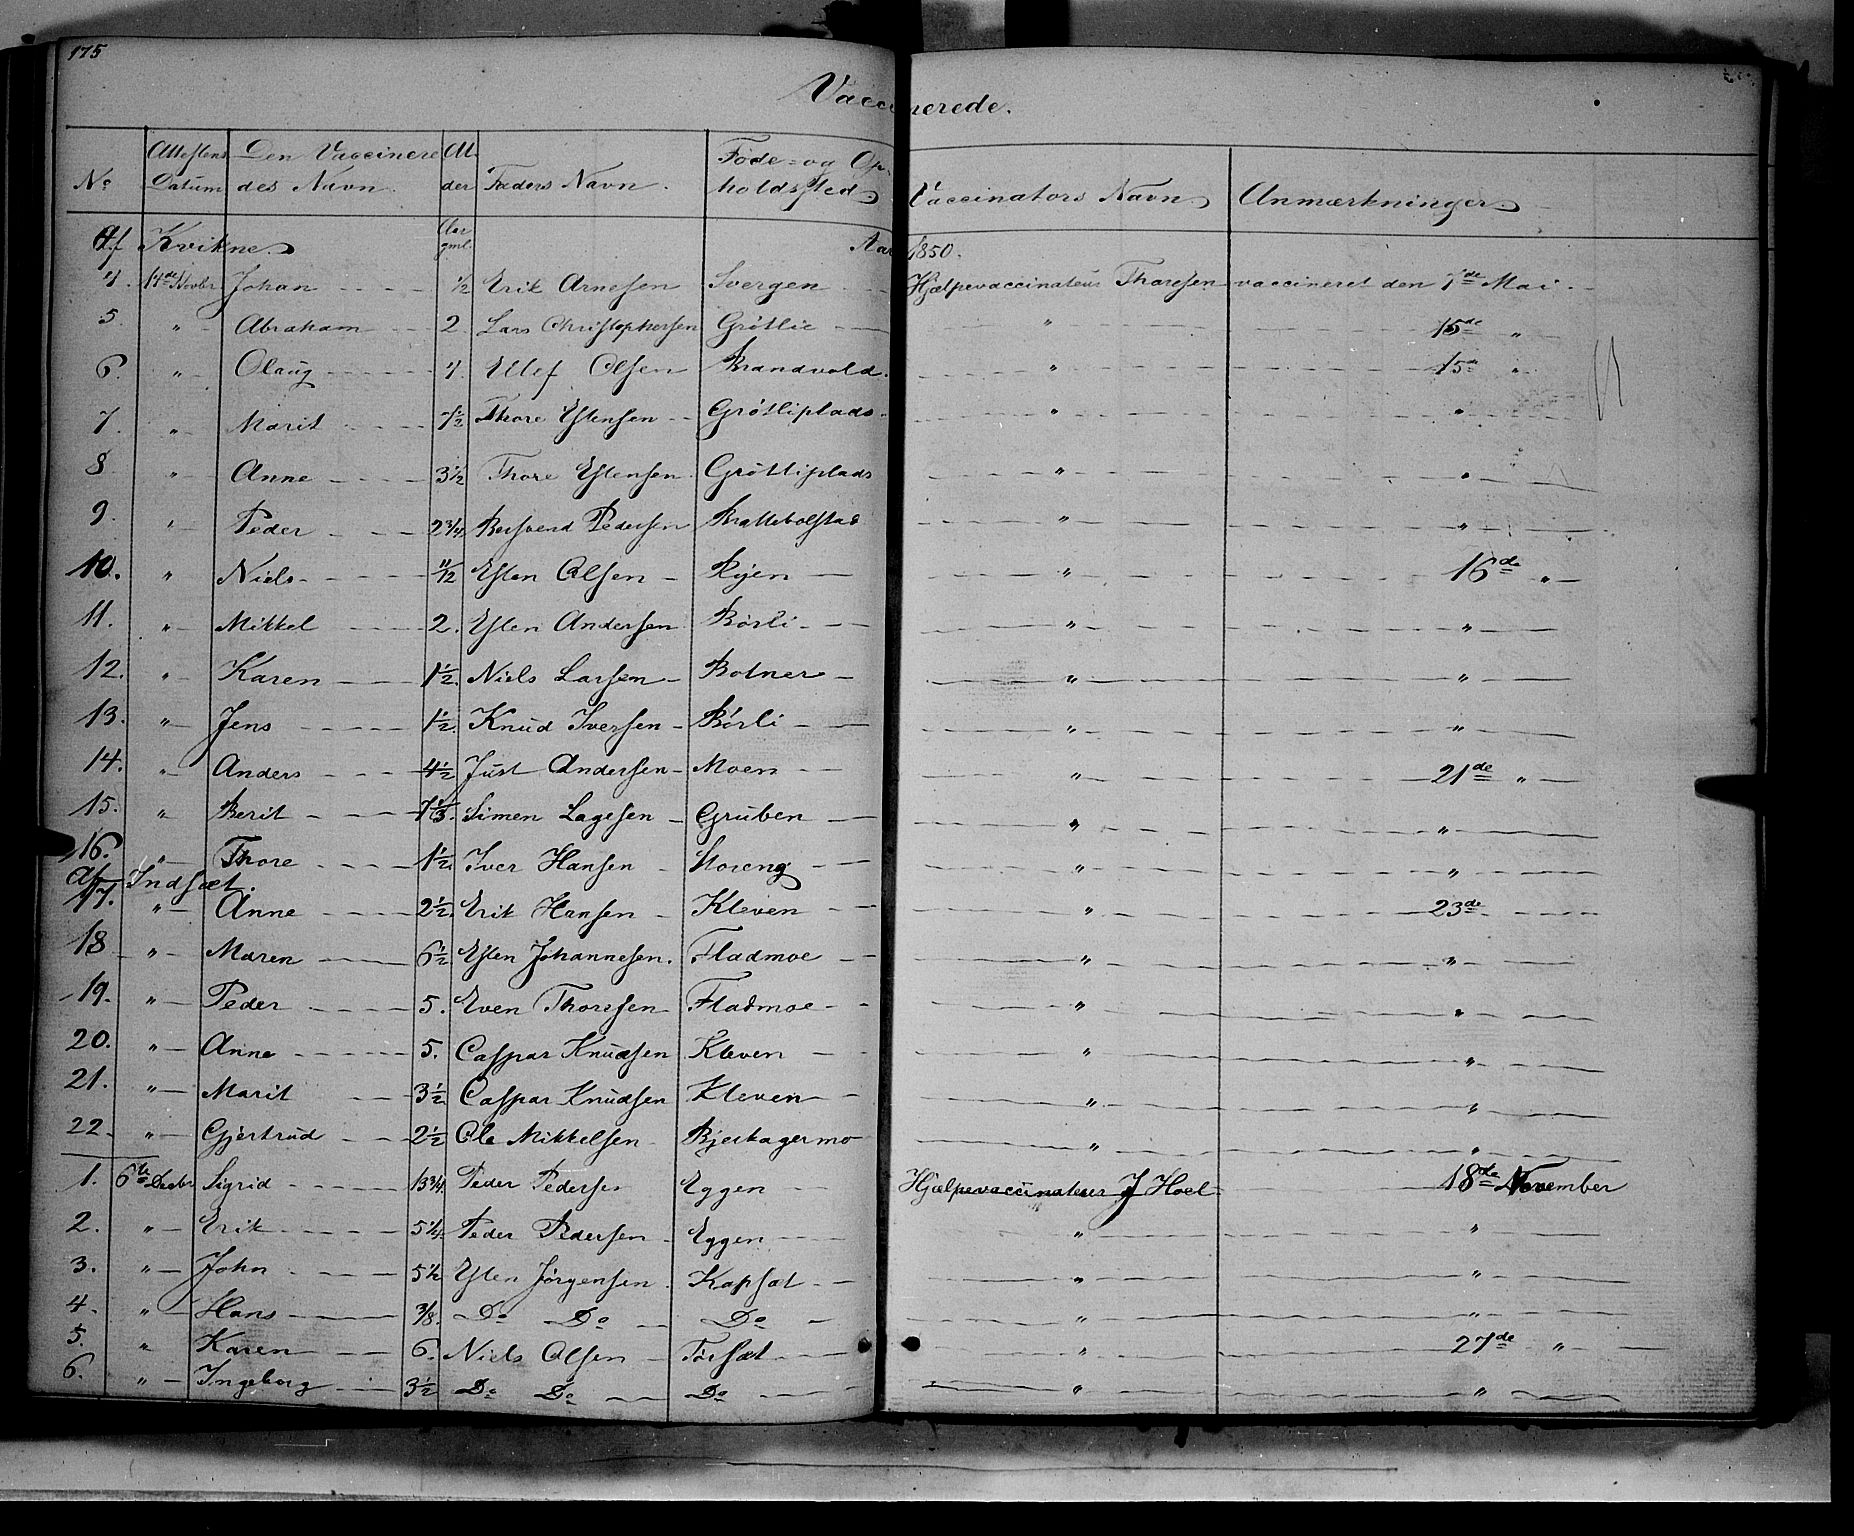 175
Vaccinerede.
No Attestens Datum Den Vaccineredes Navn. Alder Faders Navn. Føde- og Opholdssted Vaccinators Navn Anmærkninger
Af Kvikne Aar gml. Aar 1850.
4. 14de Novbr Johan ½ Erik Arnesen Svergen Hjælpevaccinateur Thoresen vaccineret den 7de Mai
5. " Abraham 2 Lars Christophersen Grøtlie " 15de "
6. " Olaug 4 Ellef Olsen Brandvold " 15de "
7. " Marit 7½ Thore Estensen Grøtliplads " "
8 " Anne 3½ Thore Estensen Grøtliplads " "
9. " Peder 2¾ Bersvend Pedersen Brattebolstad " "
10. " Niels 11/12 Esten Olsen Ryen " 16de "
11. " Mikkel 2. Esten Andersen Børli " "
12. " Karen 1½ Niels Larsen Botner " "
13. " Jens 1½ Knud Iversen Børli " "
14. " Anders 4½ Just Andersen Moen " 21de "
15. " Berit 7⅓ Simen Lagesen Gruben " "
16. " Thore 1½ Iver Hansen Storeng " "
Af Indset.
17. " Anne 2½ Erik Hansen Kleven " 23de
18 " Maren 6½ Esten Johannesen. Fladmoe " "
19. " Peder 5. Even Thoresen Fladmoe " "
20. " Anne 5. Caspar Knudsen Kleven " "
21. " Marit 3½ Caspar Knudsen Kleven " "
22. " Gjertrud 2½ Ole Mikkelsen Bjerkagermo " "
1. 6te Decbr Sigrid 13¾ Peder Pedersen Eggen Hjælpevaccinateur J Hoel 18de November
2. " Erik 5¼ Peder Pedersen Eggen " "
3. " John 5½ Esten Jørgensen Kapsæt " "
4. " Hans 3/8. Do Do Do " "
5. " Karen 6. Niels Olsen Torsæt " 27de "
6. " Ingeborg 3½ Do Do Do " "